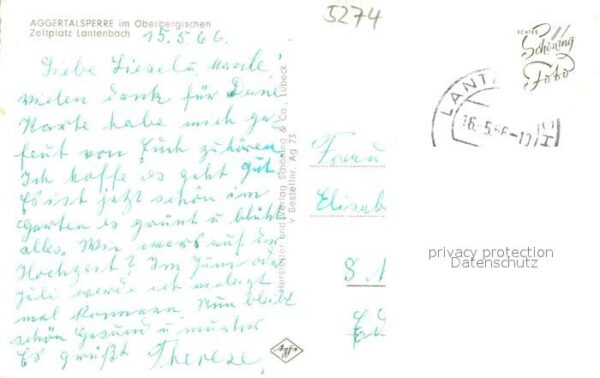 5274
AGGERTALSPERRE im Oberbergischen
Zeltplatz Lantenbach
15.5.66.
Liebe Liesel u.
vielen dank für Deine
Karte habe mich ge
freut von Euch zu hören
Ich hoffe es geht gut.
Es ist jetzt schön im
Garten es grünt u blüht
alles. Wie wars auf der
Hochzeit? Im Juni oder
Juli werde ich
mal kommen. Nun bleibt
schön Gesund u munter
Es grüßt Therese.
Hersteller und Verlag Schöning & Co., Lübeck
v Bestellnr. Ag 75
Agfa
ECHTES
Schöning
Foto
LANT
16.-5.66-1
Frau
Elisab
privacy protection
Datenschutz